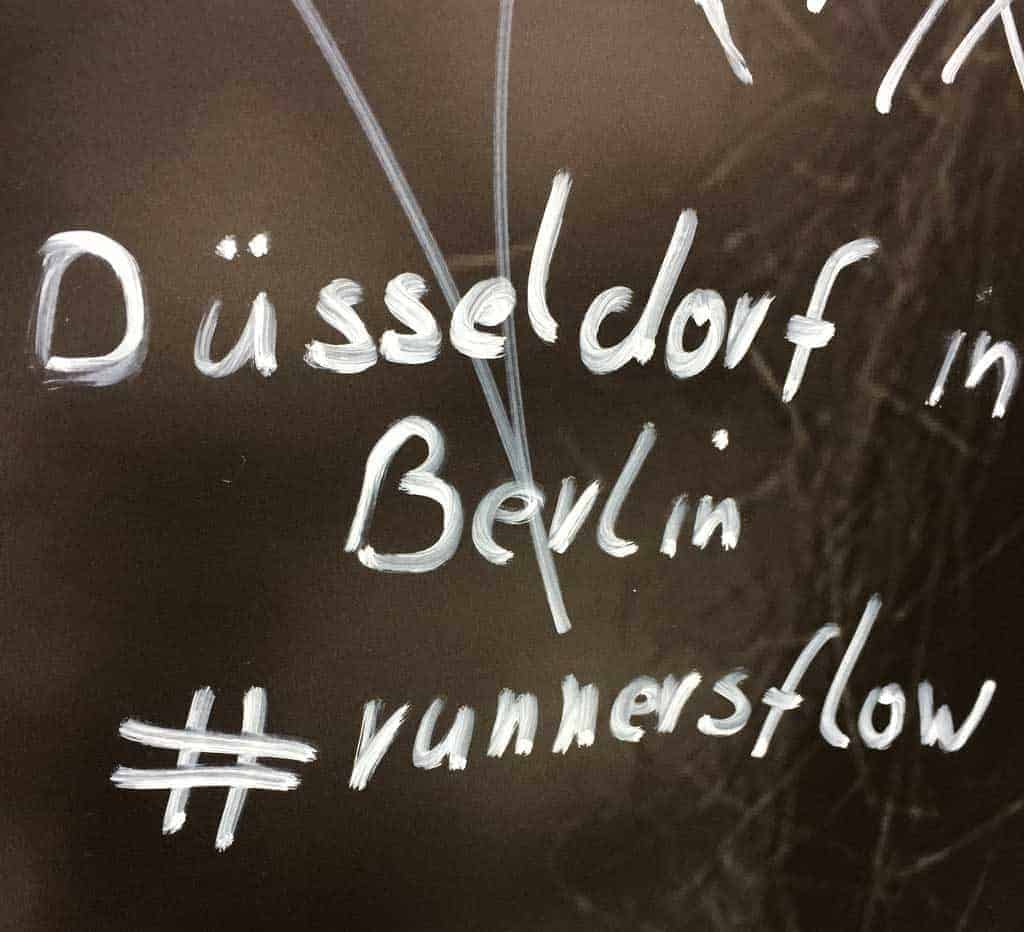 Düsseldorf in
Berlin
#runnersflow